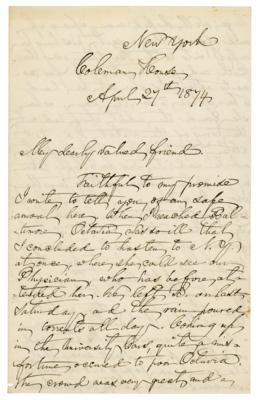 New York
Coleman House
April 27th 1874
My dearly valued friend
Faithful to my promise
I write to tell you of my safe
arrival here. When I reached Bal-
timore, Octavia was so ill that
I concluded to hasten to N. Y.
at once, where she could see our
Physician, who has before at-
tended her. We left B. on last
Saturday, and the rain poured
in torrents all day. Coming up
in the University Cars, quite a mis-
fortune occured to poor Octavia.
The crowd was very great, and a